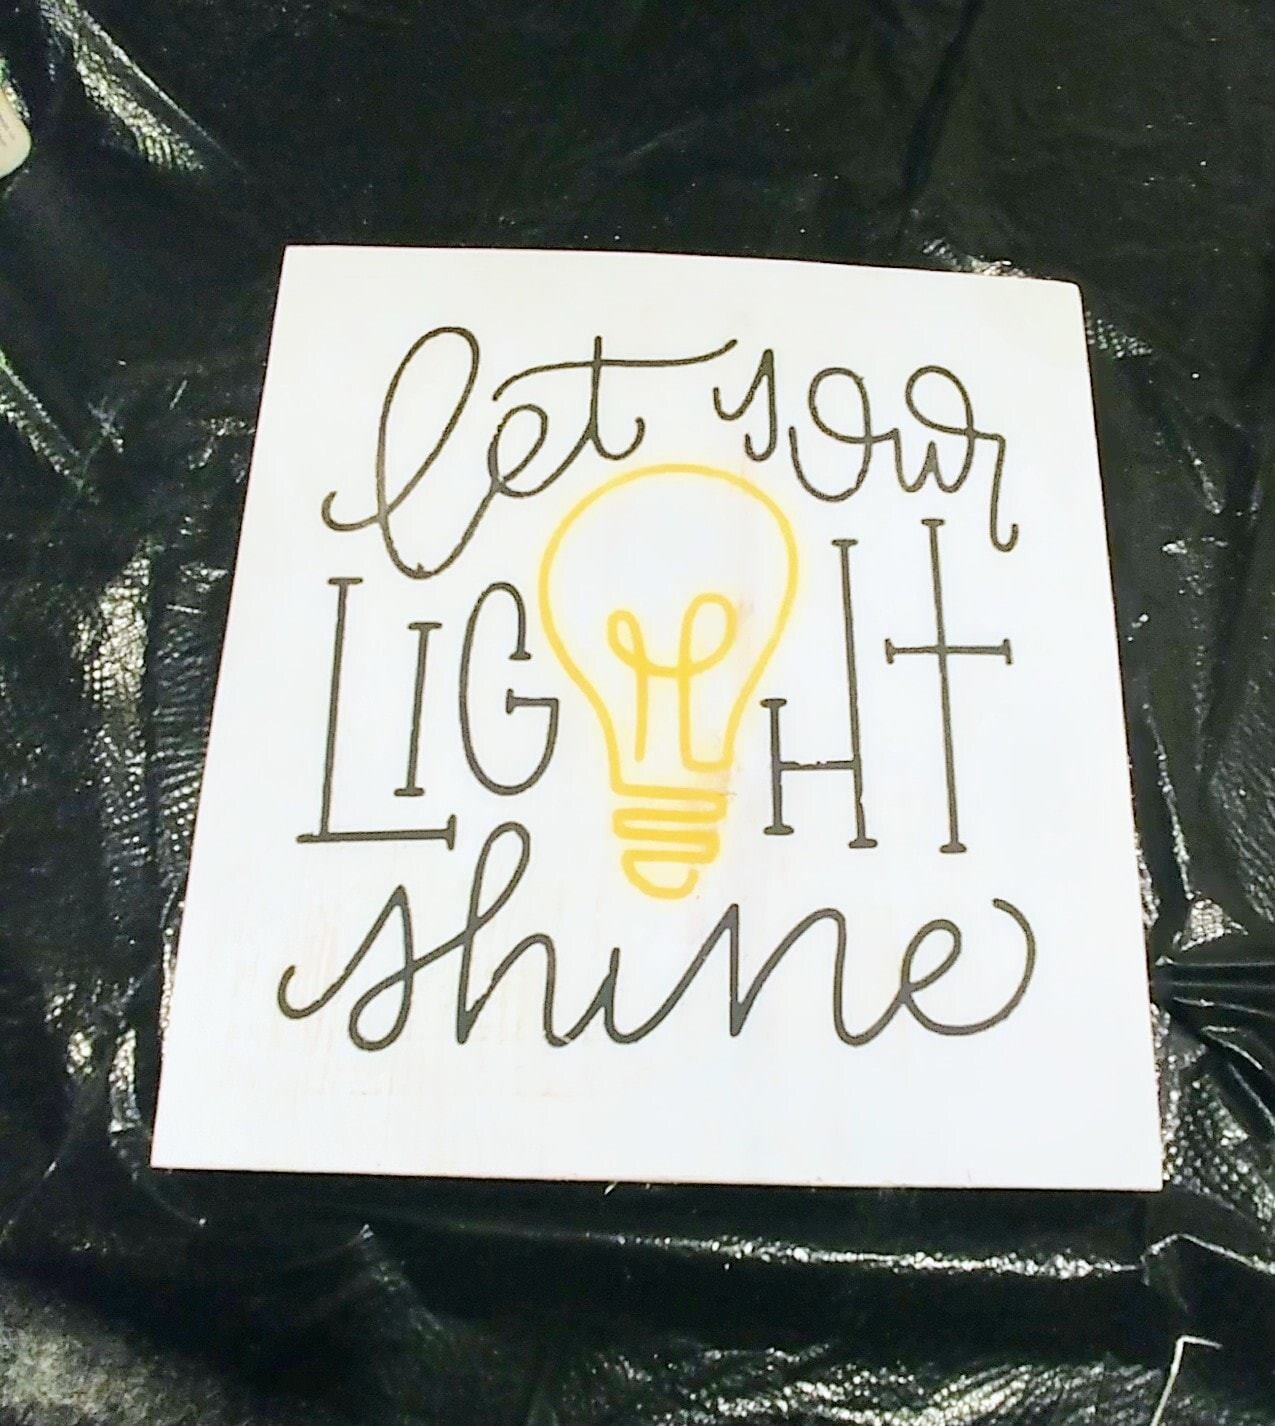 let your
LIGHT
shine